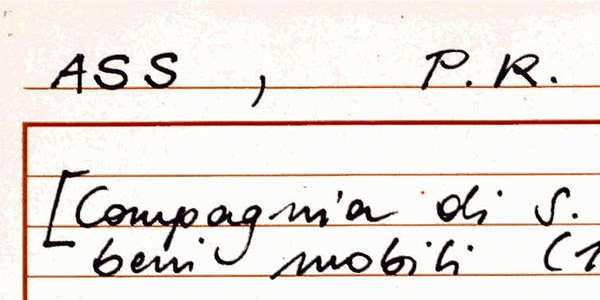 ASS , P.R.
[Compagnia di S.
beni mobili (1